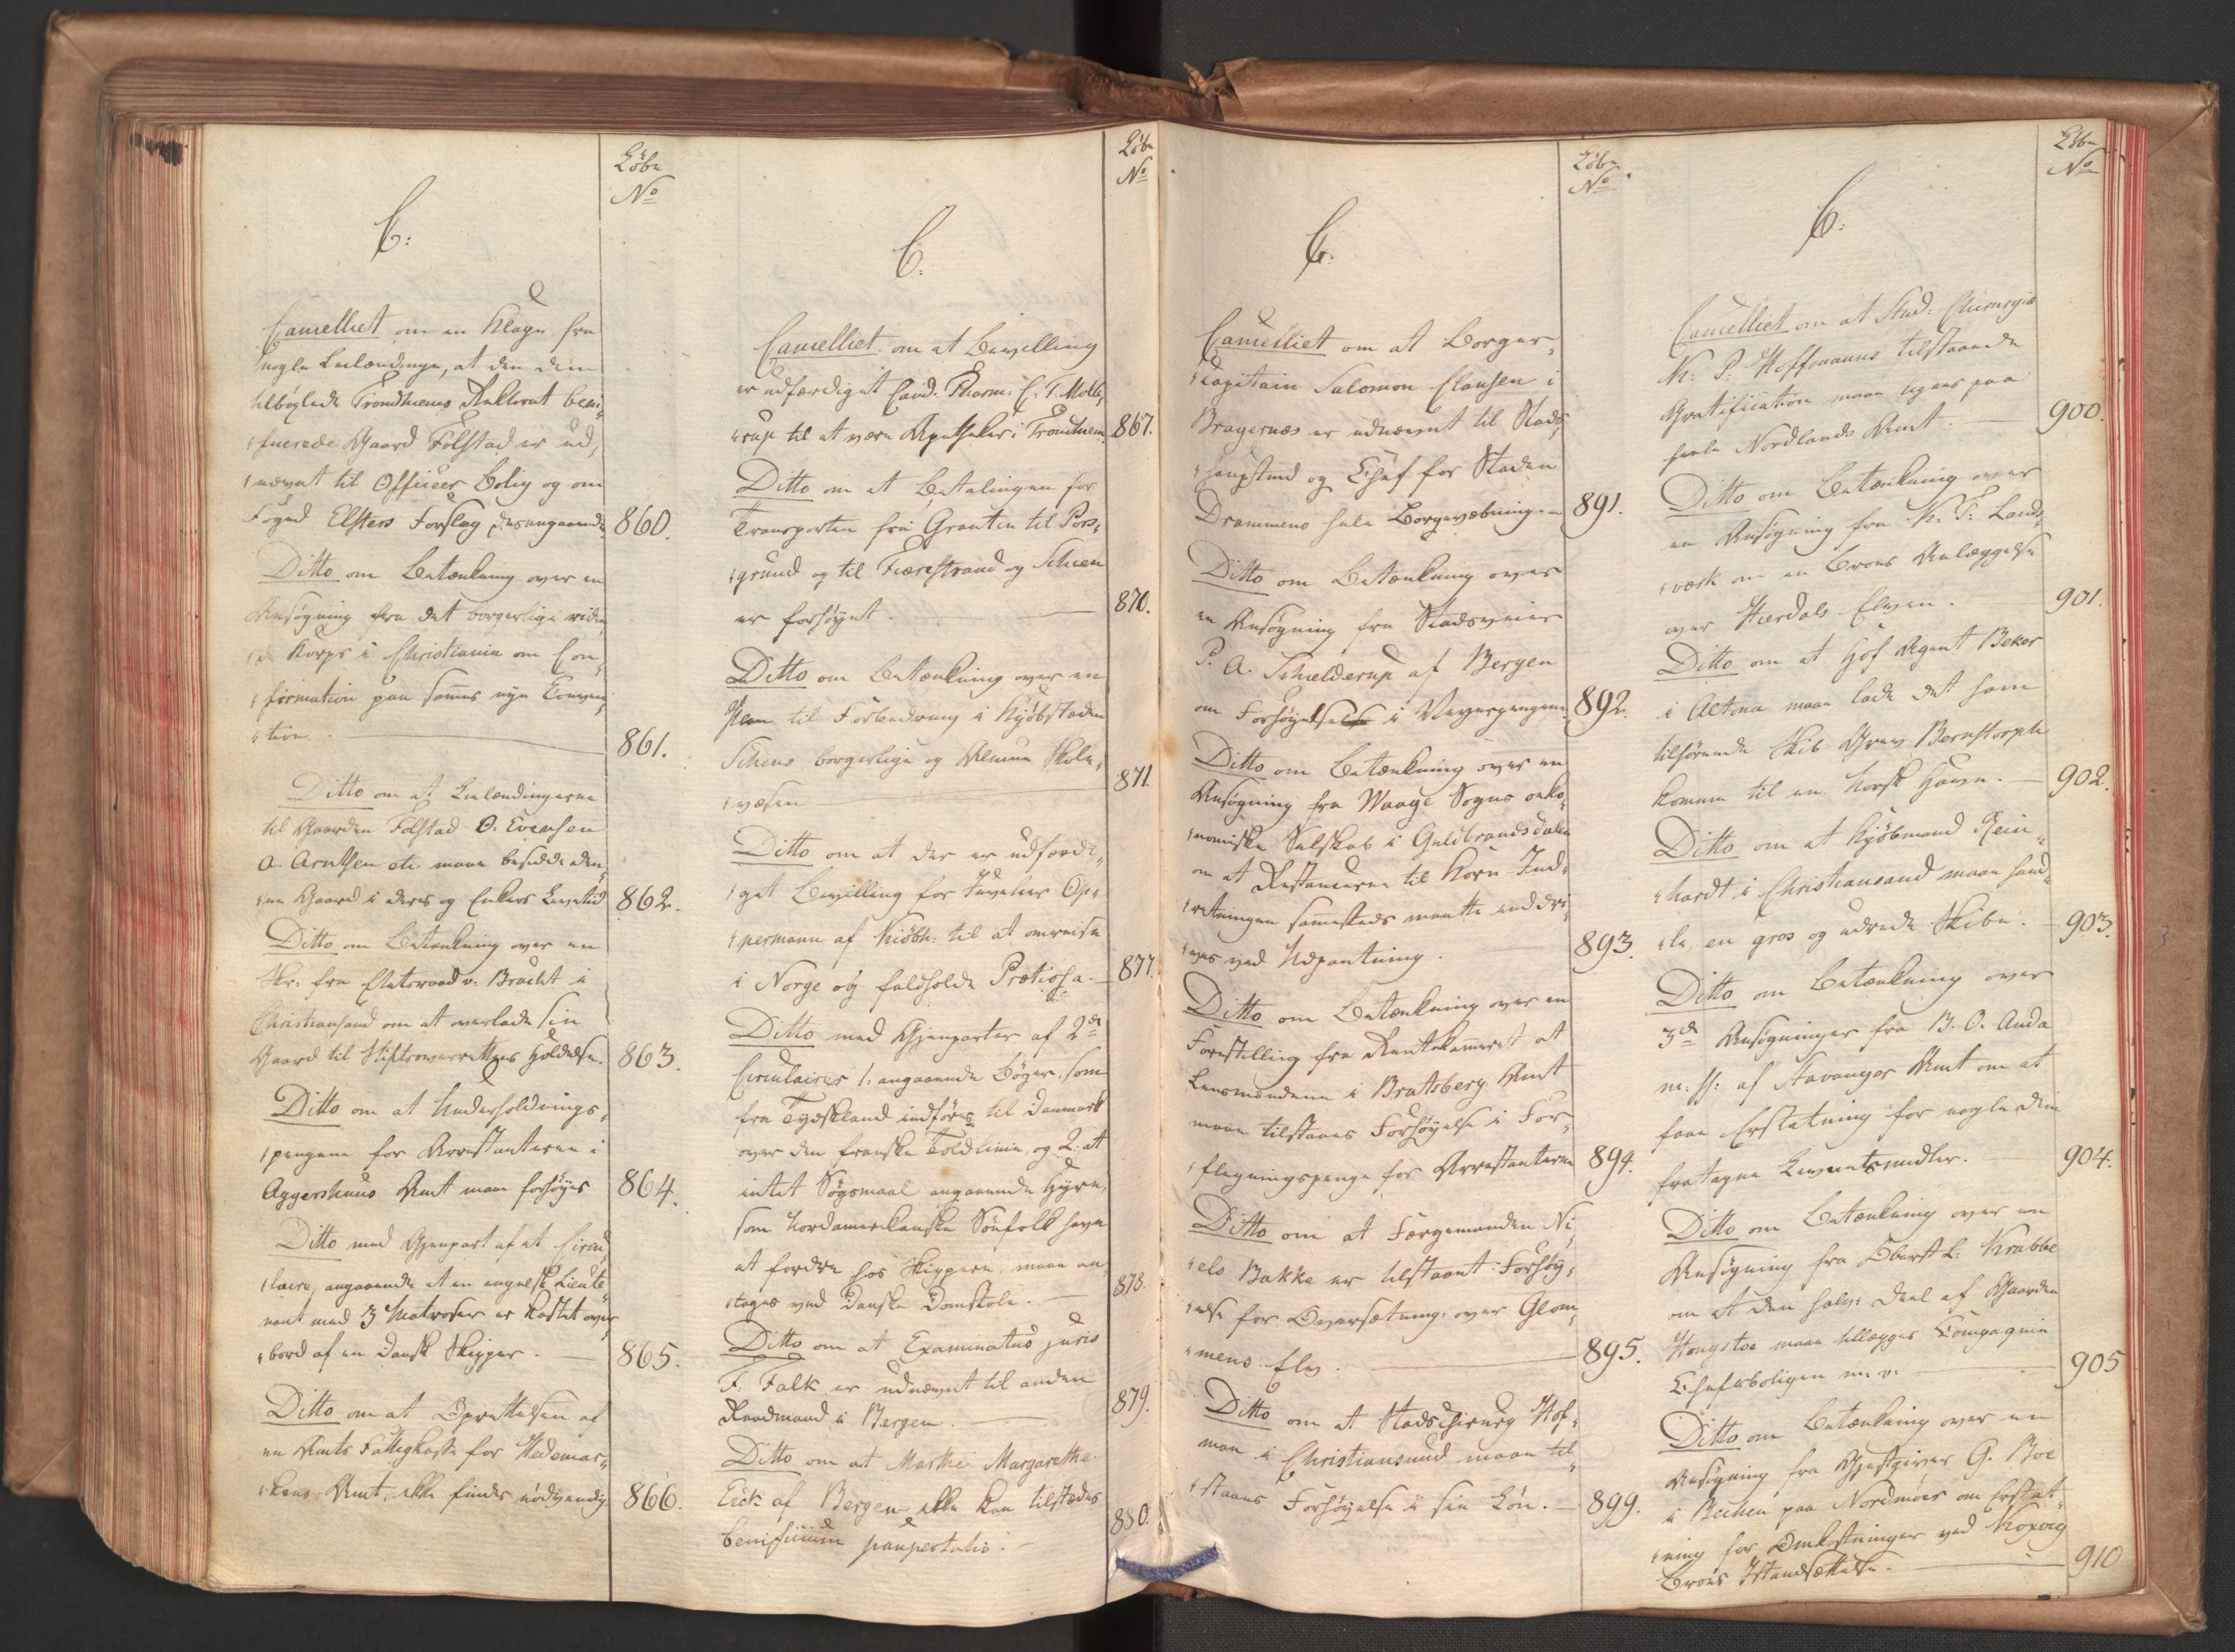 Løbe
No
C:
Cancelliet om en Klage fra
nogle Leilændinge, at den dem
tilbøxlede Trondhiems Rektorat beni-
ficerede Gaard Folstad er ud-
nævnt til Officeer Bolig og om
Foged Elsters Forslag desangaaende 860.
Ditto om Betænkning over en
Ansøgning fra det borgerlige riden-
de Korps i Christiania om Con-
firmation paa sammes nye Conven-
tion. 861.
Ditto om at Leilændingerne
til Gaarden Folstad O. Evensen
A. Arntsen etc. maae besidde den-
ne Gaard i deres og Enkers Levetid 862.
Ditto om Betænkning over en
Skr: fra Etatsraad v. Bracht i
Christiansand om at overlade sin
Gaard til Stiftsoverrettens Holdelse. 863.
Ditto om at Underholdnings-
pengene for Arrestanterne i
Aggershuus Amt maae forhøyes 864.
Ditto med Gjenpart af et Circu-
laire, angaaende at en engelsk Lieute-
nant med 3 Matroser er kastet over
bord af en dansk Skipper. 865.
Ditto om at Oprettelsen af
en Amts Fattigkasse for Hedemar-
kens Amt, ikke findes nødvendig. 866.
Løbe
No
C.
Cancelliet om at Bevilling
er udfærdiget Cand. Pharm: C. F. Molle-
rup til at være Apotheker i Trondhiem 867.
Ditto om at Betalingen for
Transporten fra Grantin til Pors-
grund og til Fierestrand og Scheen
er forhøyet. 870.
Ditto om Betænkning over en
Plan til Forbedring i Kjøbstæden
Scheens borgerlige og Almue Skole-
væsen 871
Ditto om at der er udfærdi-
get Bevilling for Juveleer Op-
permann af Kiøbh: til at omreise
i Norge og falholde Prætiosa. 877.
Ditto med Gjenparter af 2de
Circulairer 1. angaaende Bøger, som
fra Tydskland indføres til Danmark
over den franske Toldlinie, og 2. at
intet Søgsmaal angaaende Hyre,
som Nordamerikanske Søefolk have
at fordre hos Skippere, maae an-
tages ved danske Domstole. 878.
Ditto om at Examinatus juris
F. Falk er udnævnt til anden
Raadmand i Bergen. 879.
Ditto om at Marthe Margarethe
Eeck af Bergen ikke kan tilstædes
beneficium paupertatis. 880.
Løbe
No
C.
Cancelliet om at Borger-
Capitain Salomon Clausen i
Bragernæs er udnævnt til Stads-
hauptmd og Chef for Staden
Drammens hele Borgevæbning 891.
Ditto om Betænkning over
en Ansøgning fra Stadsveier
P. A. Schielderup af Bergen
om Forhøyelse i Veierpengene 892.
Ditto om Betænkning over en
Ansøgning fra Waage Sogns oeko-
nomiske Selskab i Guldbrandsdalen
om at Restancerne til Korn Ind-
retningen sammesteds maatte inddri-
ves ved Udpantning. 893.
Ditto om Betænkning over en
Forestilling fra Rentekammeret at
Lensmændene i Bratsberg Amt
maae tilstaaes Forhøyelse i For-
plegningspenge for Arrestanterne 894.
Ditto om at Færgemanden Ni-
els Bakke er tilstaaet Forhøy-
else for Oversætning over Glom-
mens Elv. 895.
Ditto om at Stadschirurg Hof-
man i Christiansund maae til-
staaes Forhøyelse i sin Løn. 899.
Løbe
No
C:
Cancelliet om at Stud: Chirurgiæ
N: P: Hoffmanns tilstaaede
Gratification maae lignes paa
heele Nordlands Amt. 900.
Ditto om Betænkning over
en Ansøgning fra N: F: Lands-
værk om en Broes Anlæggelse
over Hierdals Elven. 901.
Ditto om at Hof Agent Beker
i Altona maae lade det ham
tilhørende Skib Grev Bernstorph
komme til en norsk Havn. 902.
Ditto om at Kjøbmand Rein-
hardt i Christiansand maae hand-
le en gros og udrede Skibe. 903.
Ditto om Betænkning over
3de Ansøgninger fra B. O. Anda
m: fl: af Stavanger Amt om at
faae Erstatning for nogle dem
fratagne Levnetsmidler. 904.
Ditto om Betænkning over en
Ansøgning fra Oberst L: Krabbe
om at den halve Deel af Gaarden
Hougstoe maae tillægges Compagnie
Chefsboligen m. v. 905
Ditto om Betænkning over en
Ansøgning fra Gjestgiver G. Boe
i Beehen paa Nordmøer om Erstat-
ning for Omkostninger ved Korvig
Broes Istandsættelse. 910